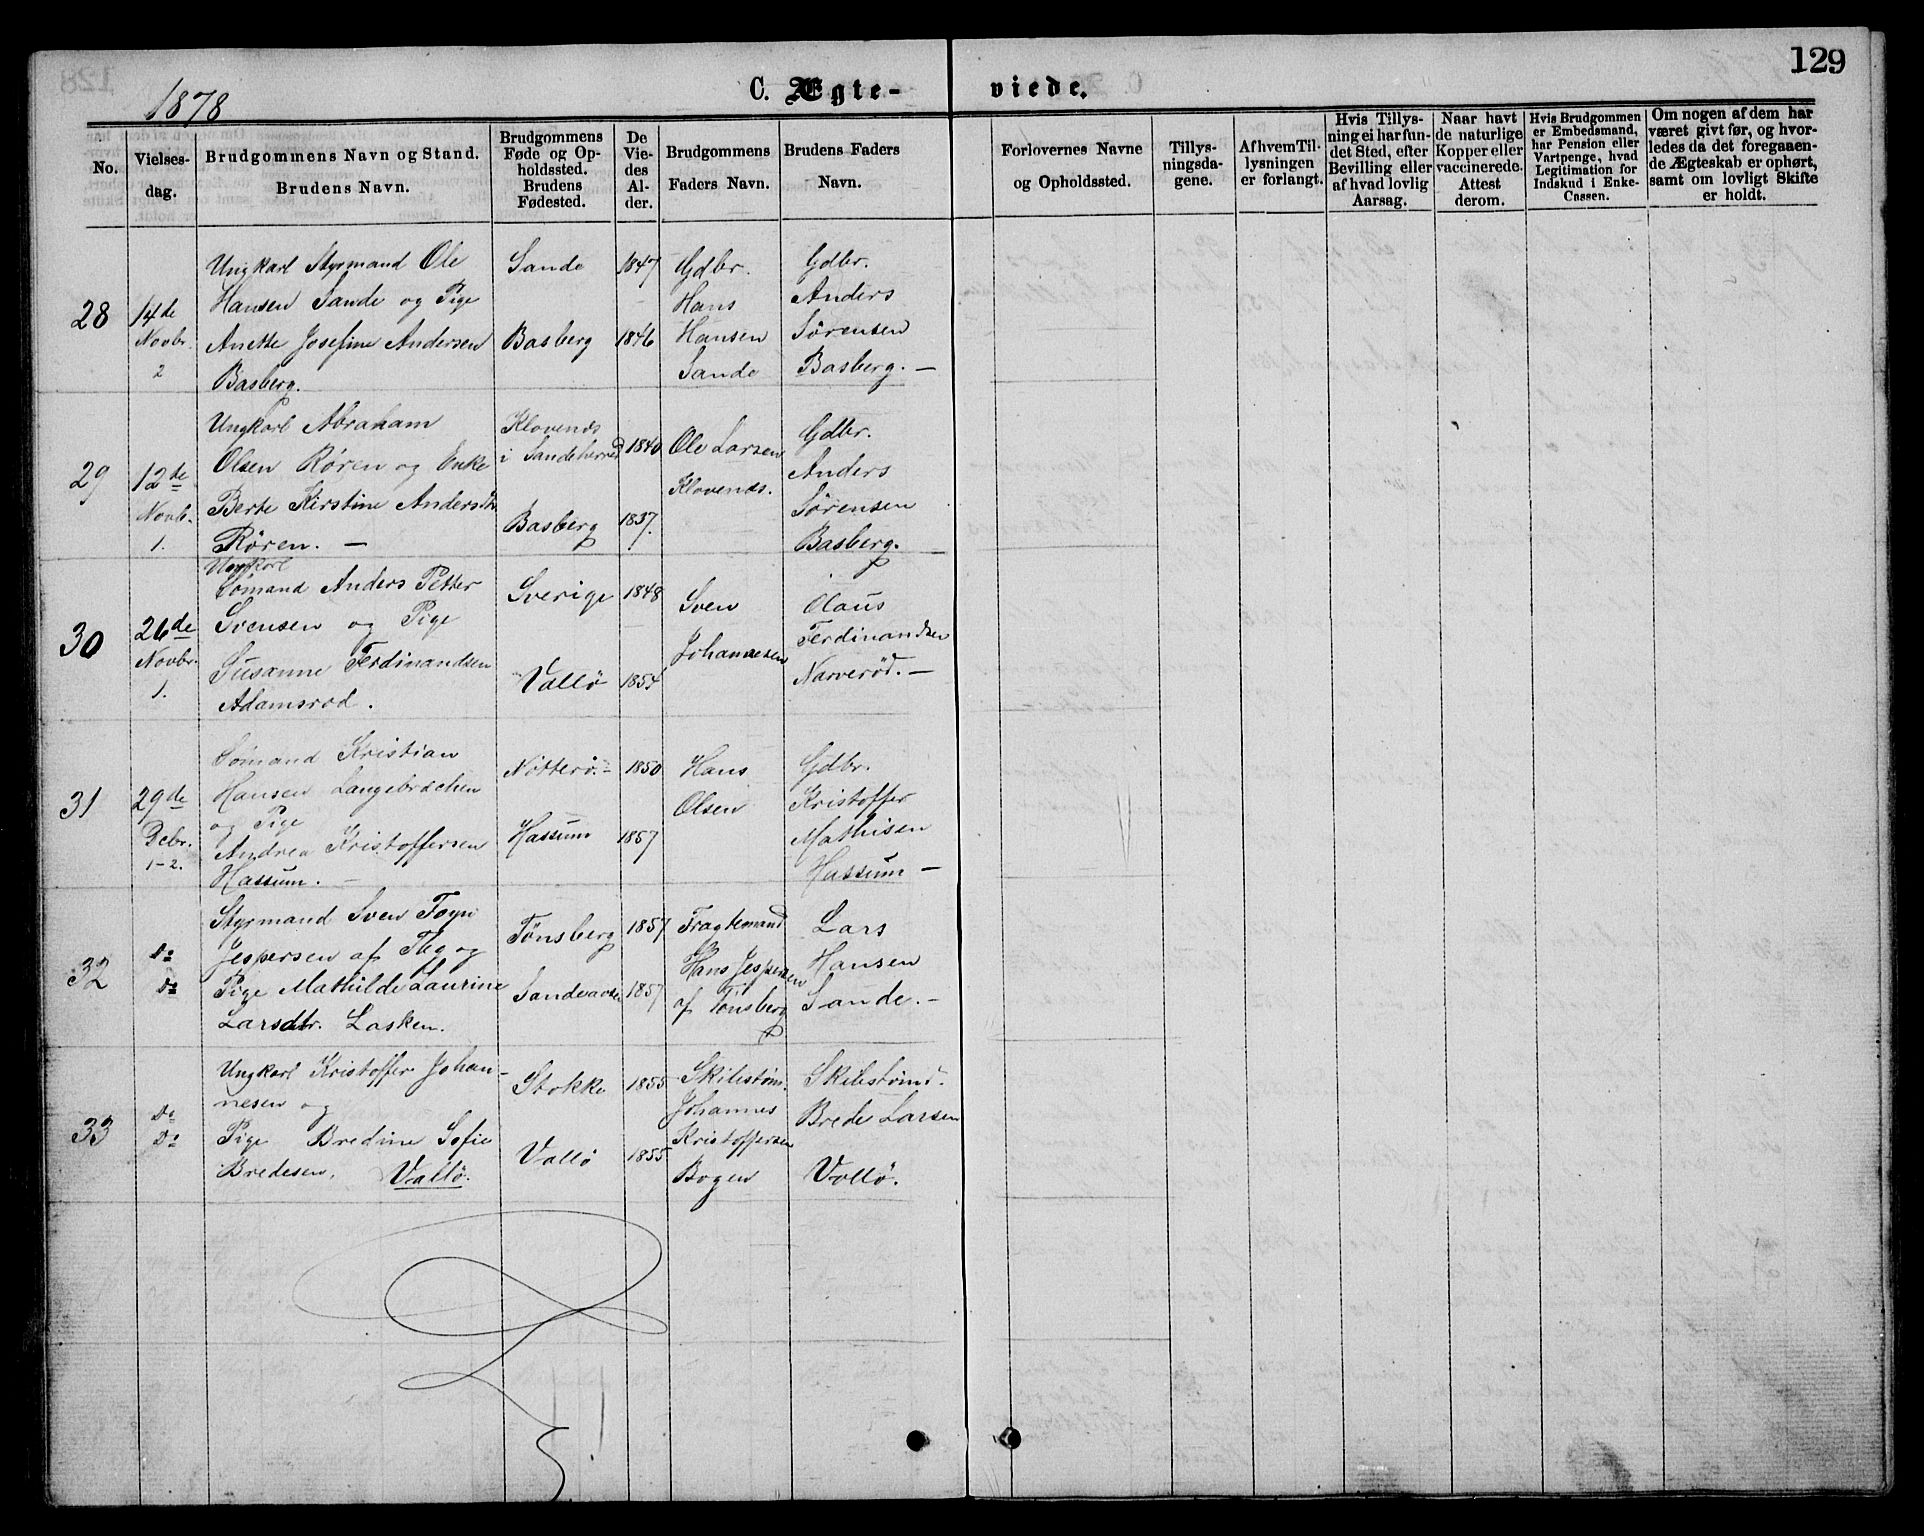 129
1878
C. Ægte-
viede.
No.
Vielses-
dag.
Brudgommens Navn og Stand.
Brudens Navn.
Brudgommens
Føde og Op-
holdssted.
Brudens
Fødested.
De
Vie-
des
Al-
der.
Brudgommens
Faders Navn.
Brudens Faders
Navn.
Forlovernes Navne
og Opholdssted.
Tillys-
ningsda-
gene.
Af hvem Til-
lysningen
er forlangt.
Hvis Tillys-
ning ei har fun-
det Sted, efter
Bevilling eller
af hvad lovlig
Aarsag.
Naar havt
de naturlige
Kopper eller
vaccinerede.
Attest
derom.
Hvis Brudgommen
er Embedsmand,
har Pension eller
Vartpenge, hvad
Legitimation for
Indskud i Enke-
Cassen.
Om nogen af dem har
været givt før, og hvor-
ledes da det foregaaen-
de Ægteskab er ophørt,
samt om lovligt Skifte
er holdt.
28
14de
Novbr.
2
Ungkarl Styrmand Ole
Hansen Sande og Pige
Anette Josefine Andersen
Basberg.
Sande
Basberg
1847
1846
Gdbr.
Hans
Hansen
Sande
Gdbr.
Anders
Sörensen
Basberg. —
29
12de
Novb.
1.
Ungkarl Abraham
Olsen Røren og Enke
Berte Kirstine Anders
Røren. —
Klovends
i Sandeherred
Basberg
1840
1837.
Ole Larsen
Klovends.
Gdbr.
Anders
Sörensen
Basberg. —
30
26de
Novbr.
1.
Ungkarl
Sömand Anders Petter
Svensen og Pige
Susanne Ferdinandsen
Adamsrød.
Sverige
Vallö
1848
1854
Sven
Johannesen
Olaus
Ferdinandsen
Narverød. —
31
29de
Debr.
1-2.
Sömand Kristian
Hansen Langebrækken
og Pige
Andrea Kristoffersen
Hassum. —
Nötterö. —
Hassum
1850
1857
Hans
Olsen
Gdbr.
Kristoffer
Mathisen
Hassum —
32
Do
Do
Styrmand Sven Foyn
Jespersen af Tbg og
Pige Mathilde Laurine
Larsdtr. Lasken.
Tønsberg
1857
1857
Fragtemand
Hans Jespersen
af Tönsberg
Lars
Hansen
Sande. —
33
Do
Do
Ungkarl Kristoffer Johan-
nesen og
Pige Bredine Sofie
Bredesen. Vallö.
Stokke
Vallö
1855
1855
Skibstøm.
Johannes
Kristoffersen
Bogen
Skibstømd.
Brede Larsen
Vallö.